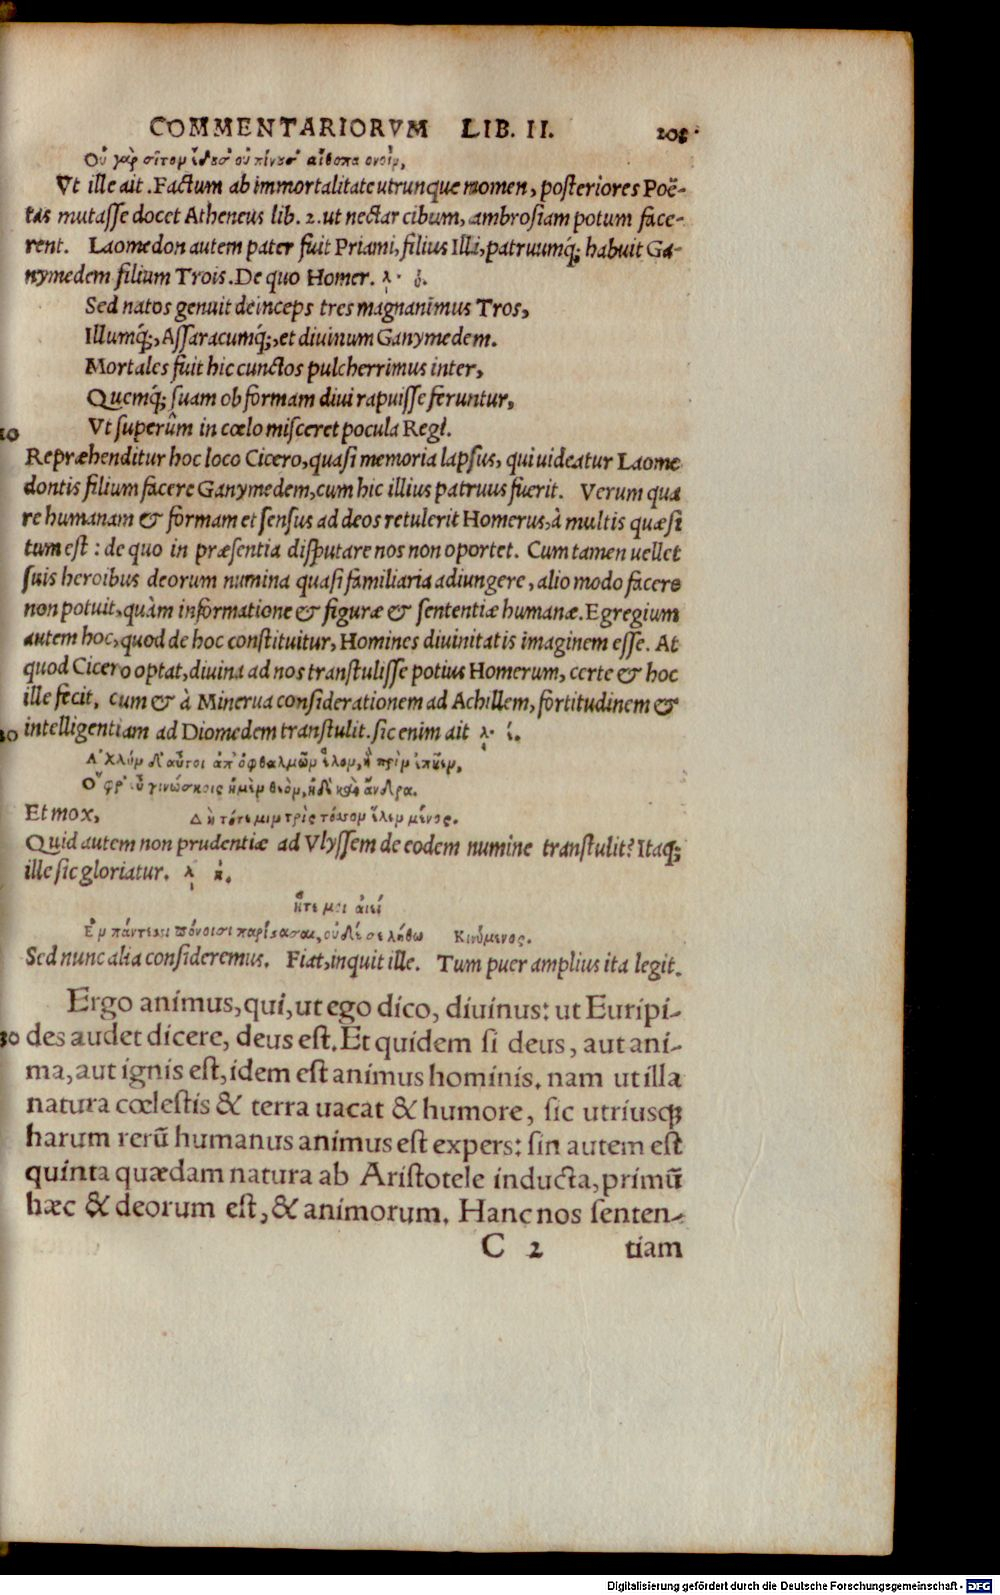 COMMENTARIORVM LIB. II. 205
Οὐ γὰρ σῖτον ἔδουσ' οὐ πίνουσ' αἴθοπα οἶνον,
Vt ille ait. Factum ab immortalitate utrunque nomen, posteriores Poë-
tas mutasse docet Atheneus lib. 2. ut nectar cibum, ambrosiam potum face-
rent. Laomedon autem pater fuit Priami, filius Illi, patruumq́; habuit Ga-
nymedem filium Trois. De quo Homer.
Sed natos genuit deinceps tres magnanimus Tros,
Illumq́;, Assaracumq́;, et diuinum Ganymedem.
Mortales fuit hic cunctos pulcherrimus inter,
Quemq́; suam ob formam diui rapuisse feruntur,
10 Vt superûm in cœlo misceret pocula Regi.
Repræhenditur hoc loco Cicero, quasi memoria lapsus, qui uideatur Laome
dontis filium facere Ganymedem, cum hic illius patruus fuerit. Verum qua
re humanam & formam et sensus ad deos retulerit Homerus, à multis quæsi
tum est: de quo in præsentia disputare nos non oportet. Cum tamen uellet
suis heroibus deorum numina quasi familiaria adiungere, alio modo facere
non potuit, quàm informatione & figuræ & sententiæ humanæ. Egregium
autem hoc, quod de hoc constituitur, Homines diuinitatis imaginem esse. At
quod Cicero optat, diuina ad nos transtulisse potius Homerum, certe & hoc
ille fecit, cum & à Minerua considerationem ad Achillem, fortitudinem &
20 intelligentiam ad Diomedem transtulit. sic enim ait
Ἀχλὺν δ' αὖτοι ἀπ' ὀφθαλμῶν ἕλον, ἣ πρὶν ἐπῆεν,
Ὄφρ' εὖ γινώσκοις ἠμὲν θεὸν, ἠδὲ καὶ ἄνδρα.
Et mox, Δὴ τότε μιν τρὶς τόσσον ἕλεν μένος.
Quid autem non prudentiæ ad Vlyssem de eodem numine transtulit? Itaq;
ille sic gloriatur. λ κ.
ἥτε μοι ἀιεί
Ἐν πάντεσσι πόνοισι παρίστασαι, οὐδέ σε λήθω Κινύμενος.
Sed nunc alia consideremus. Fiat, inquit ille. Tum puer amplius ita legit.
Ergo animus, qui, ut ego dico, diuinus: ut Euripi-
30 des audet dicere, deus est. Et quidem si deus, aut ani-
ma, aut ignis est, idem est animus hominis. nam ut illa
natura cœlestis & terra uacat & humore, sic utriusq;
harum rerū humanus animus est expers: sin autem est
quinta quædam natura ab Aristotele inducta, primū
hæc & deorum est, & animorum. Hanc nos senten-
C 2 tiam
Digitalisierung gefördert durch die Deutsche Forschungsgemeinschaft - DFG